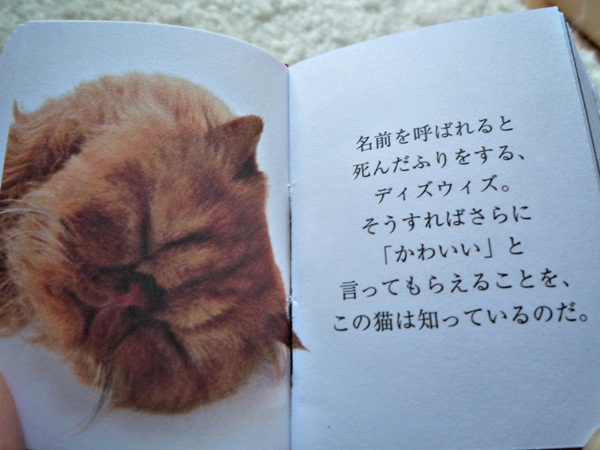 名前を呼ばれると
死んだふりをする、
ディズウィズ。
そうすればさらに
「かわいい」と
言ってもらえることを、
この猫は知っているのだ。